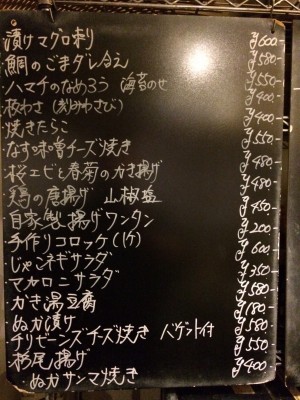 漬けマグロ刺 ¥600
鯛のごまダレ和え ¥580
ハマチのなめろう 海苔のせ ¥550
板わさ(刻みわさび) ¥400
焼きたらこ ¥400
なす味噌チーズ焼き ¥550
桜エビと春菊のかき揚げ ¥480
鶏の唐揚げ 山椒塩 ¥480
自家製揚げワンタン ¥450
手作りコロッケ(1ケ) ¥200
じゃこネギサラダ ¥600
マカロニサラダ ¥350
かき湯豆腐 ¥580
ぬか漬け ¥180
チリビーンズチーズ焼き バゲット付 ¥580
栃尾揚げ ¥550
ぬかサンマ焼き ¥400